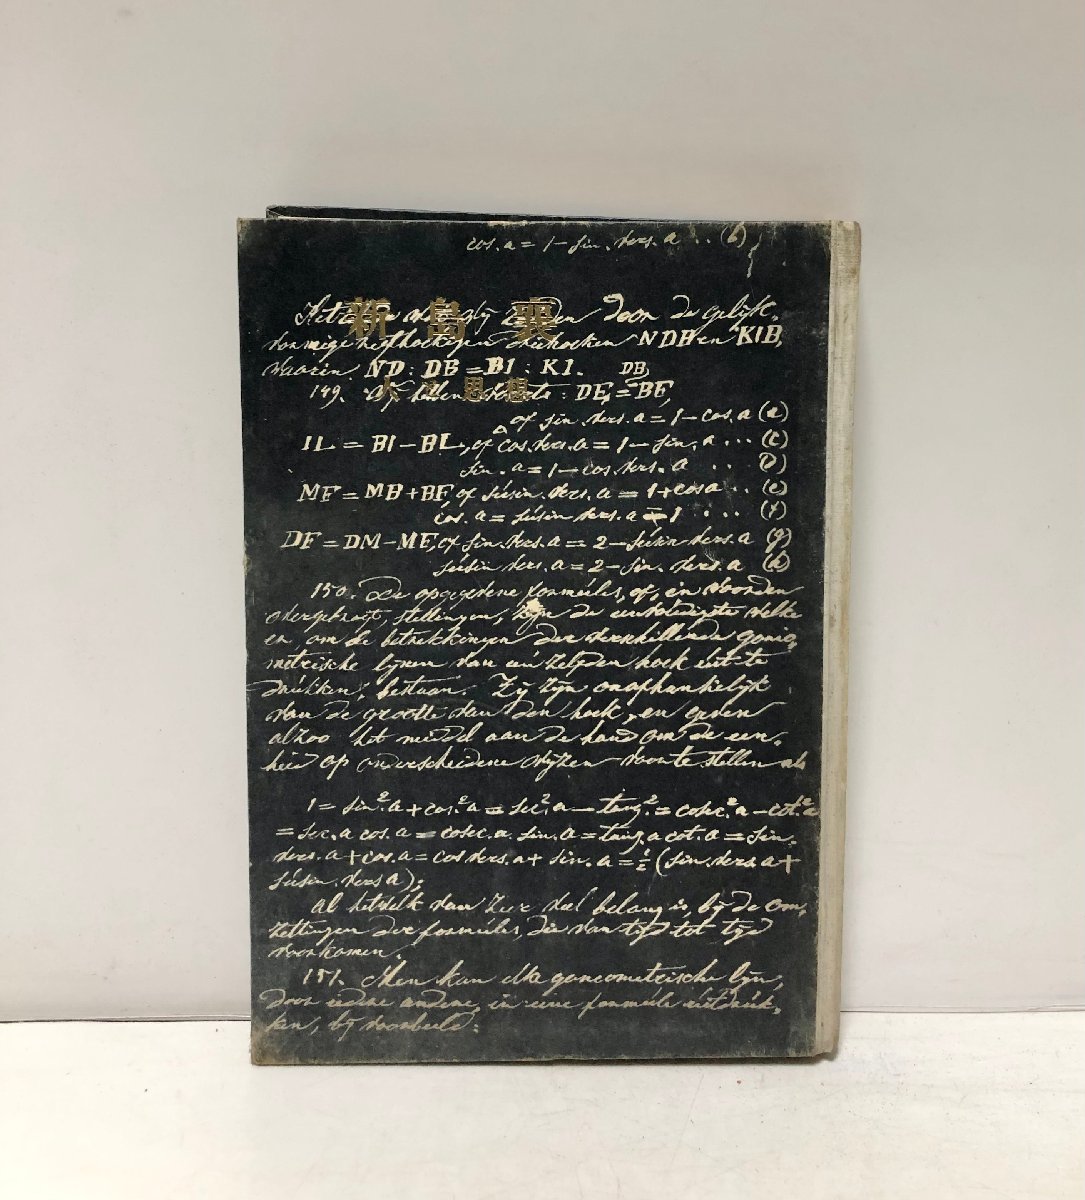 cos. a = 1 – sin. vers. a . . (b)
新島襄
door de gelijk,
vormige regthoekigen driehoeken NDB en KIB,
waarin ND : DB = BI : KI. DB,
人 思想
149. Wij hebben : DE = BF,
of sin. vers. a = 1 – cos. a (a)
IL = BI – BL, of cos. vers. a = 1 – sin. a ... (c)
sin. a = 1 – cos. vers. a . . (d)
MF = MB + BF, of súsin. vers. a = 1 + cos a . . (e)
cos. a = súsin vers. a – 1 . . . (f)
DF = DM – MF, of sin. vers. a = 2 – súsin vers. a (g)
súsin vers. a = 2 – sin. vers. a (h)
150. De opgegevene formúles, of, in woorden
overgebragt, stellingen, zijn de eenvoudigste welke
en om de betrekkingen der verschillende gonio,
metrische lijnen van een zelfden hoek uit te
drúkken, bestaan. Zij zijn onafhankelijk
van de grootte van den hoek, en geven
alzoo het middel aan de hand om de een,
heid op onderscheidene wijzen voor te stellen als
1 = sin.² a + cos.² a = sec.² a – tang.² = cosec.² a – cot.² a
= sec. a cos. a = cosec. a. sin. a = tang. a cot. a = sin.
vers. a + cos. a = cos vers. a + sin. a = ½ (sin. vers. a +
súsin. vers a),
al hetwelk van zeer veel belang is, bij de om,
zettingen der formúles, die van tijd tot tijd
voorkomen.
151. Men kan elke goniometrische lijn,
door iedere andere, in eene formule uitdrúk,
ken, bij voorbeeld: